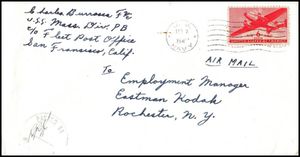 Charles Burrows F⅟c
U.S.S. Mass. Div. PB
c/o Fleet Post Office
San Francisco, Calif.
U.S.
NAVY
AIR MAIL
To
Employment Manager
Eastman Kodak
Rochester, N.Y.